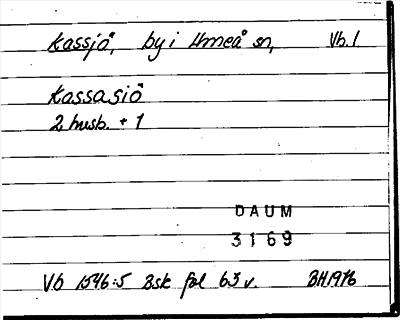 Kassjö, by i Umeå sn, Vb. l
Kassasiö
2 husb. + 1
DAUM
3169
Vb 1546:5 Bsk fol 63 v. BH1976